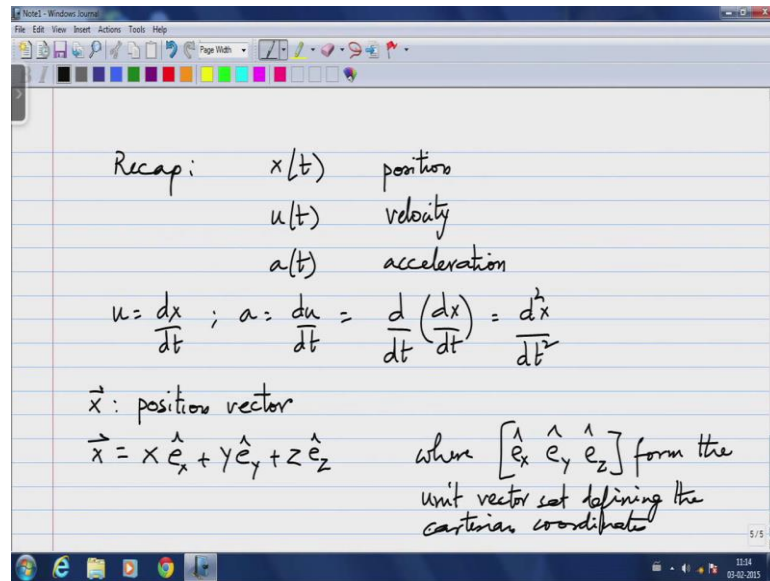 Note1 - Windows Journal
File Edit View Insert Actions Tools Help
Page Width
B I
Recap: x(t) position
u(t) velocity
a(t) acceleration
u = dx/dt ; a = du/dt = d/dt (dx/dt) = d²x/dt²
x⃗ : position vector
x⃗ = x ê_x + y ê_y + z ê_z where [ê_x ê_y ê_z] form the
unit vector set defining the
cartesian coordinates
5/5
11:14
03-02-2015